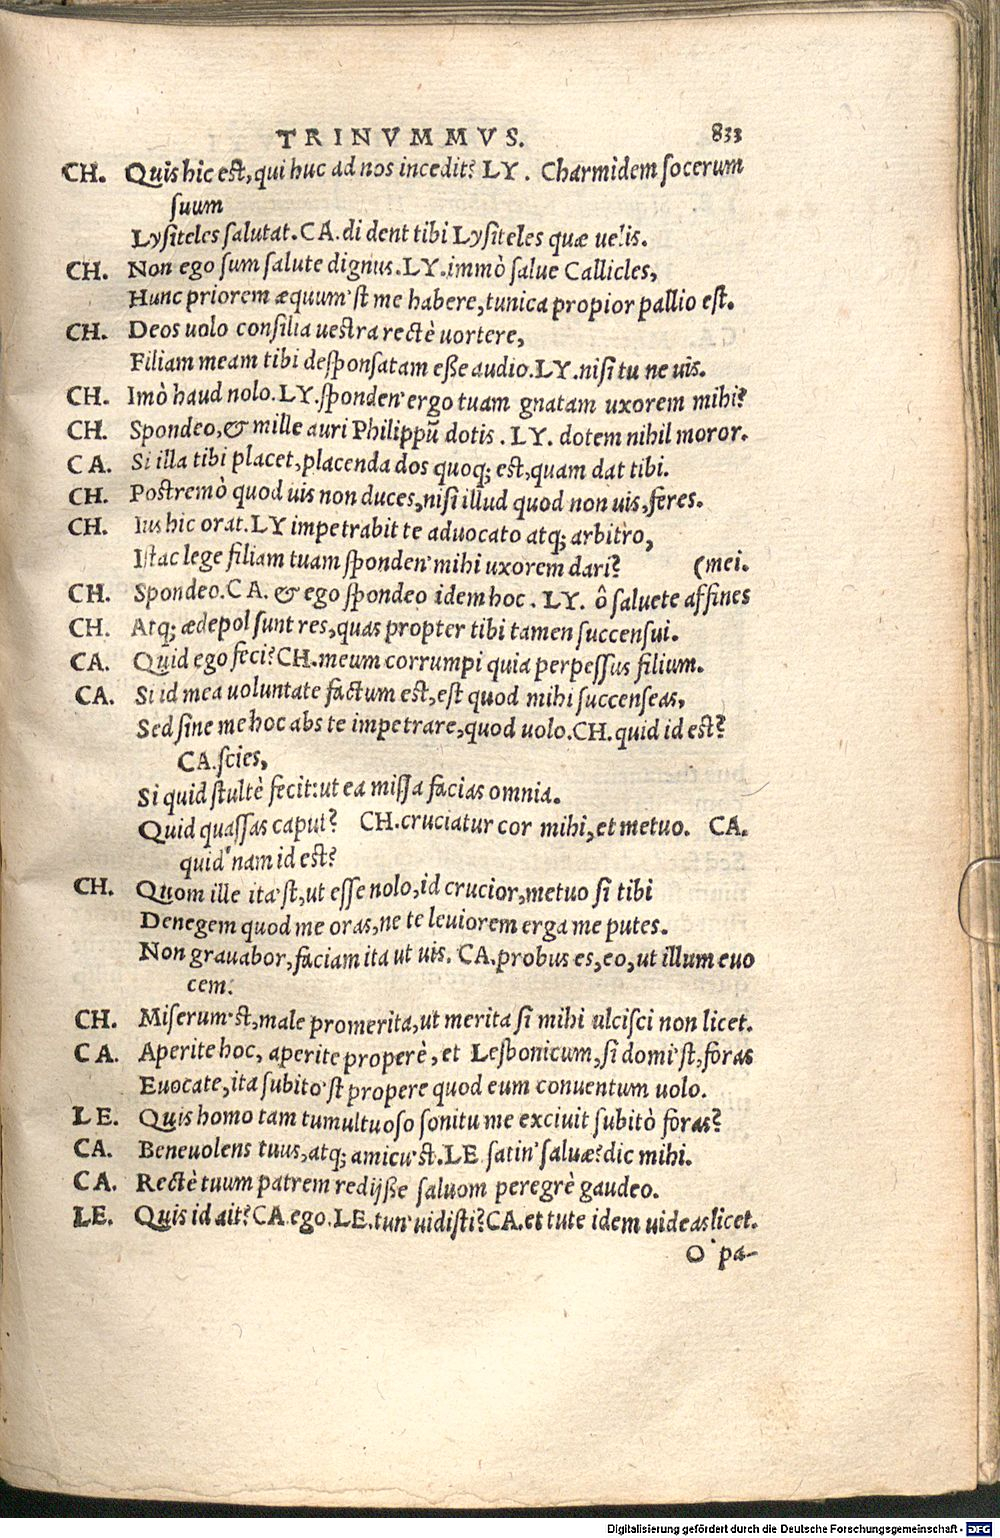 TRINVMMVS. 833
CH. Quis hic est, qui huc ad nos incedit? LY. Charmidem socerum
suum
Lysiteles salutat. CA. di dent tibi Lysiteles quæ uelis.
CH. Non ego sum salute dignus. LY. immò salue Callicles,
Hunc priorem æquum'st me habere, tunica propior pallio est.
CH. Deos uolo consilia uestra rectè uortere,
Filiam meam tibi desponsatam esse audio. LY. nisi tu ne uis.
CH. Imò haud nolo. LY. sponden' ergo tuam gnatam uxorem mihi?
CH. Spondeo, & mille auri Philippũ dotis. LY. dotem nihil moror.
CA. Si illa tibi placet, placenda dos quoq; est, quam dat tibi.
CH. Postremò quod uis non duces, nisi illud quod non uis, feres.
CH. Ius hic orat. LY impetrabit te aduocato atq; arbitro,
Istac lege filiam tuam sponden' mihi uxorem dari? (mei.
CH. Spondeo. CA. & ego spondeo idem hoc. LY. ô saluete affines
CH. Atq; ædepol sunt res, quas propter tibi tamen succensui.
CA. Quid ego feci? CH. meum corrumpi quia perpessus filium.
CA. Si id mea uoluntate factum est, est quod mihi succenseas,
Sed sine me hoc abs te impetrare, quod uolo. CH. quid id est?
CA. scies,
Si quid stultè fecit: ut ea missa facias omnia.
Quid quassas caput? CH. cruciatur cor mihi, et metuo. CA.
quid'nam id est?
CH. Quom ille ita'st, ut esse nolo, id crucior, metuo si tibi
Denegem quod me oras, ne te leuiorem erga me putes.
Non grauabor, faciam ita ut uis. CA. probus es, eo, ut illum euo
cem.
CH. Miserum'st, male promerita, ut merita si mihi ulcisci non licet.
CA. Aperite hoc, aperite properè, et Lesbonicum, si domi'st, foras
Euocate, ita subito'st propere quod eum conuentum uolo.
LE. Quis homo tam tumultuoso sonitu me exciuit subitò foras?
CA. Beneuolens tuus, atq; amicu'st. LE satin' saluæ? dic mihi.
CA. Rectè tuum patrem redijsse saluom peregrè gaudeo.
LE. Quis id ait? CA. ego. LE. tun' uidisti? CA. et tute idem uideas licet.
O pa-
Digitalisierung gefördert durch die Deutsche Forschungsgemeinschaft - DFG